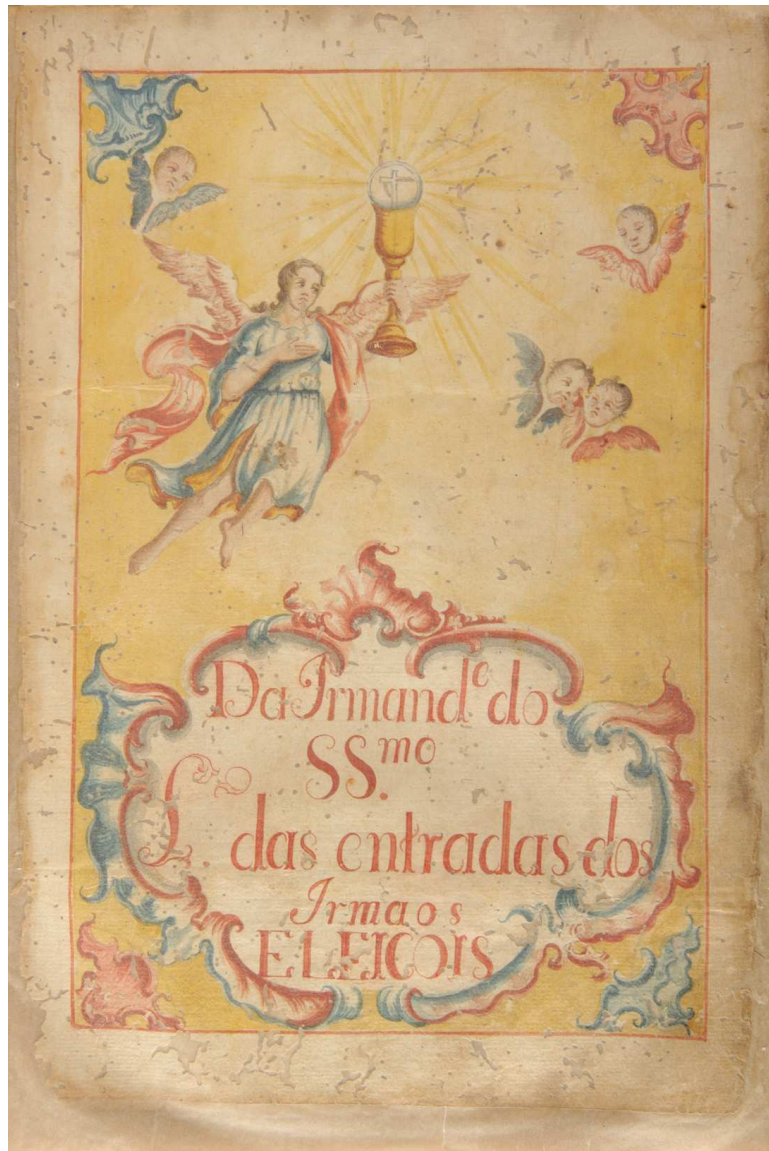 Da Irmand.ᵉ do
SS.ᵐᵒ
L.º das entradas dos
Irmaos
ELEICOIS